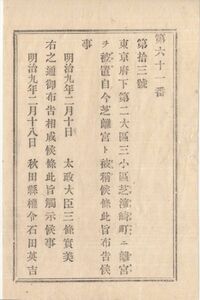 第六十一番
第拾三號
東京府下第二大區三小區芝濱崎町ニ離宮
ヲ被置自今芝離宮ト被稱候條此旨布告候
事
明治九年二月十日　太政大臣三條實美
右之通御布告相成候條此旨觸示候事
明治九年二月十八日　秋田縣權令石田英吉